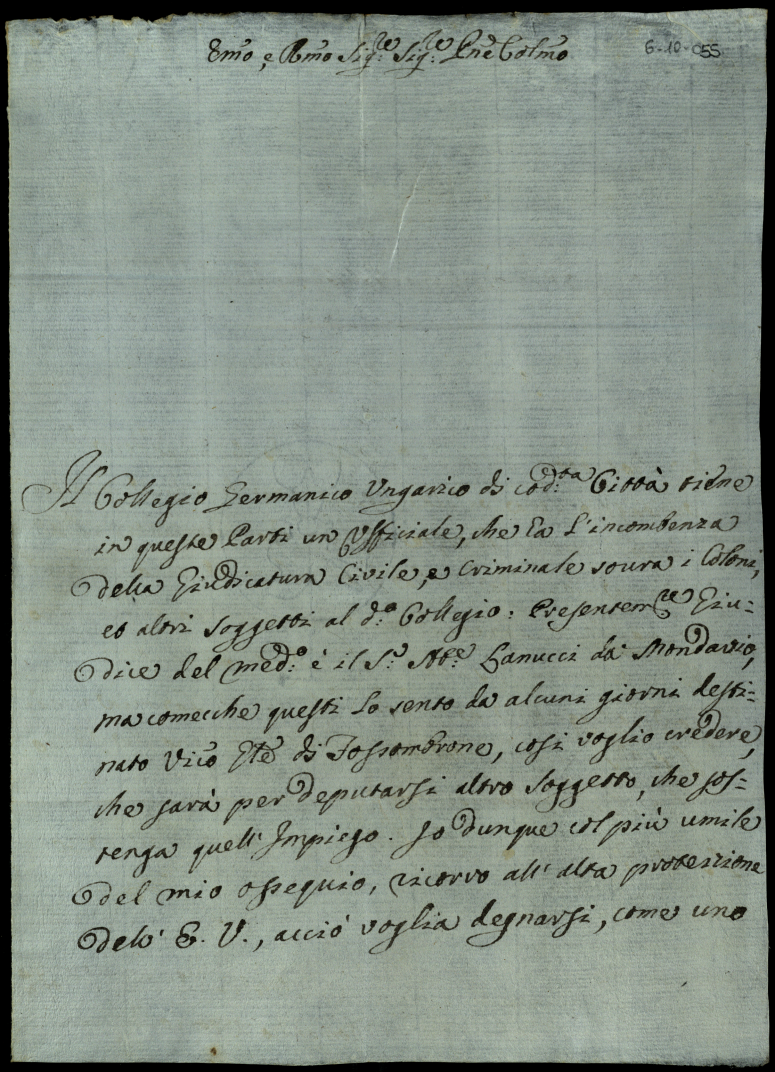 Emo, e Rmo Sig.re Sig.re Pne Colmo
6-10-055
Il Collegio Germanico Ungarico di cod.ta Città tiene
in queste Parti un Ufficiale, che ha l'incombenza
della Giudicatura Civile, e Criminale soura i Coloni,
et altri soggetti al d.o Collegio: Presentem.te Giu-
dice del med.o è il S.r Ab.e Lanucci da Mondavio,
ma comecche questi lo sento da alcuni giorni desti-
nato Vico Gle di Fossombrone, così voglio credere,
che sarà per deputarsi altro soggetto, che sos-
tenga quell'Impiego. Io dunque col più umile
del mio ossequio, ricorro all'alta protezione
dell'E. V., acciò voglia degnarsi, come uno